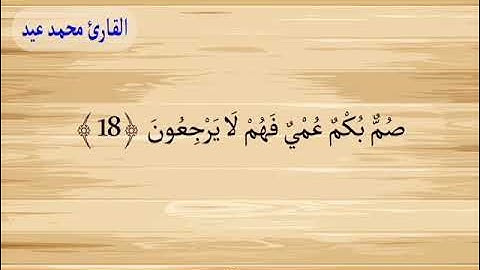 القارئ محمد عيد
صُمٌّ بُكْمٌ عُمْيٌ فَهُمْ لَا يَرْجِعُونَ ﴿18﴾